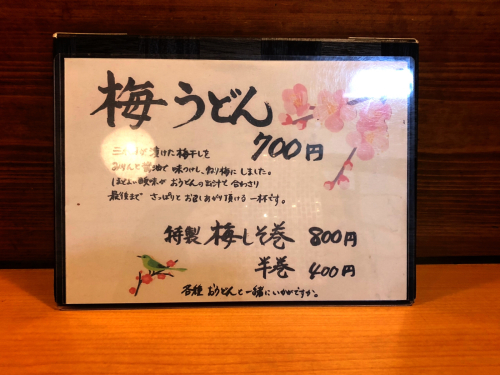 梅うどん
700円
が漬けた梅干しを
みりんと醤油で味つけし、ねり梅にしました。
ほどよい酸味がおうどんのお汁と合わさり
最後までさっぱりとお召しあがり頂ける一杯です。
特製 梅しそ巻 800円
半巻 400円
各種おうどんと一緒にいかがですか。